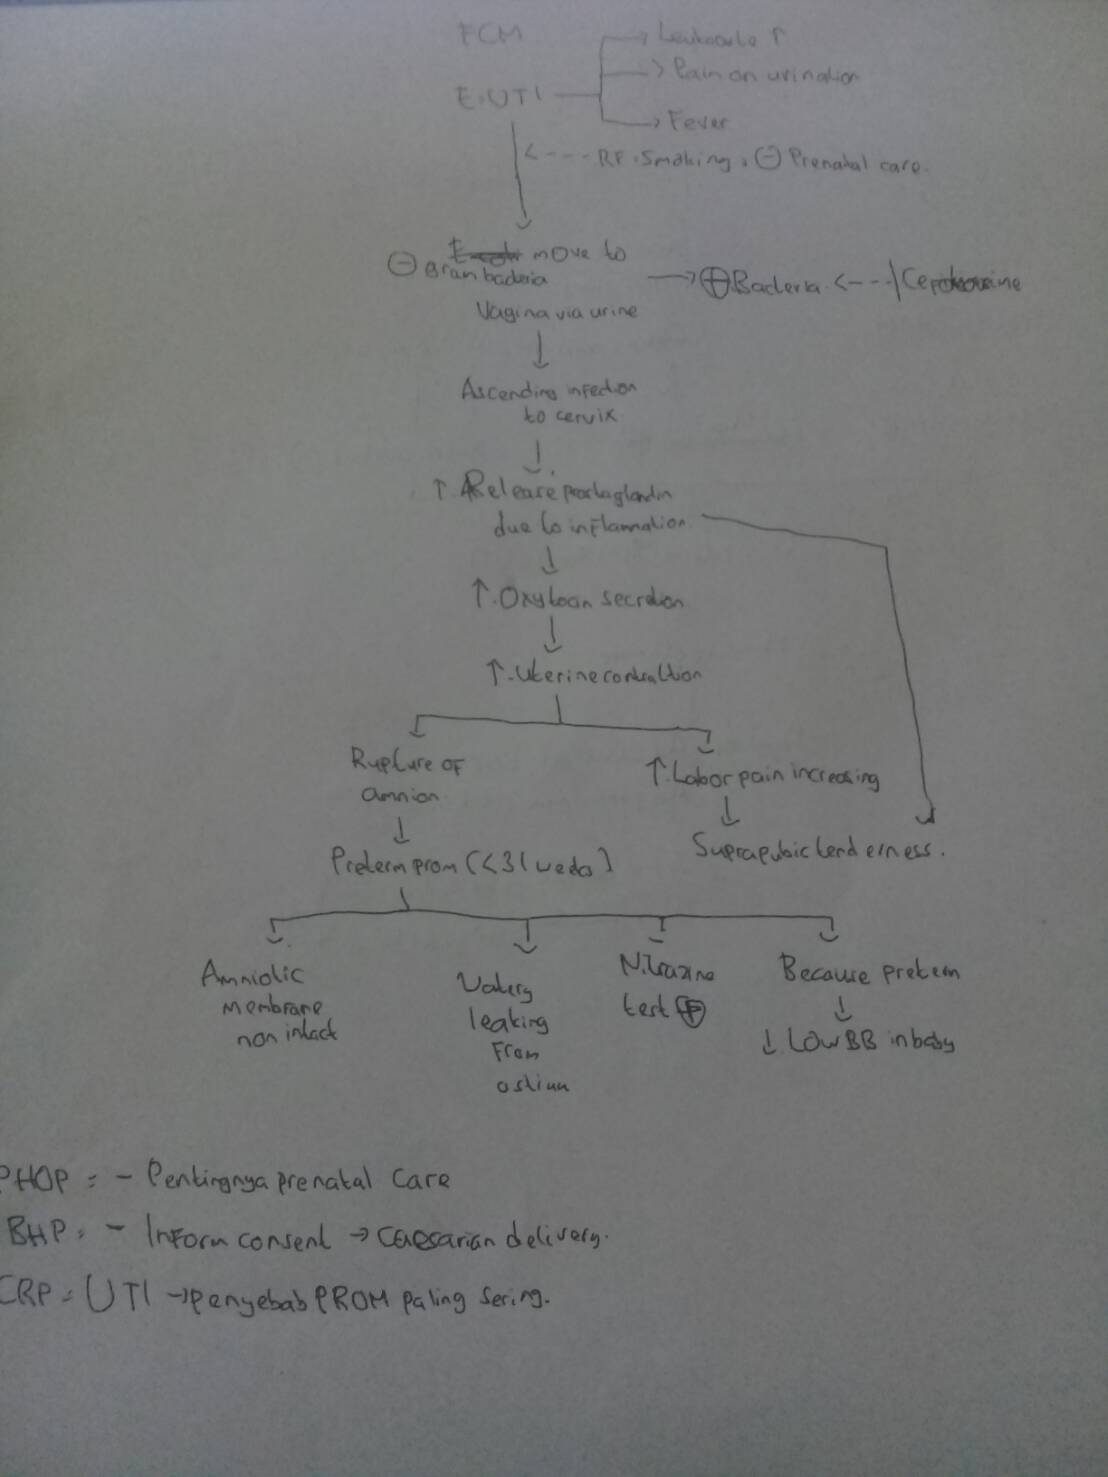 FCM
Leukocyte ↑
Pain on urination
E: UTI
Fever
RF: Smoking, ⊖ Prenatal care.
move to
⊖ Gram bacteria
⊕ Bacteria
Vagina via urine
Ascending infection
to cervix
↑ Release prostaglandin
due to inflammation
↑. Oxytocin secretion
↑. Uterine contraction
Rupture of
amnion
↑. Labor pain increasing
Preterm prom (<31 weeks)
Suprapubic tenderness.
Amniotic
membrane
non intact
Watery
leaking
From
ostium
Nitrazine
test ⊕
Because preterm
↓ Low BB in baby
PHOP = - Pentingnya prenatal Care
BHP = - Inform consent → Caesarian delivery.
CRP = UTI → penyebab PROM paling sering.